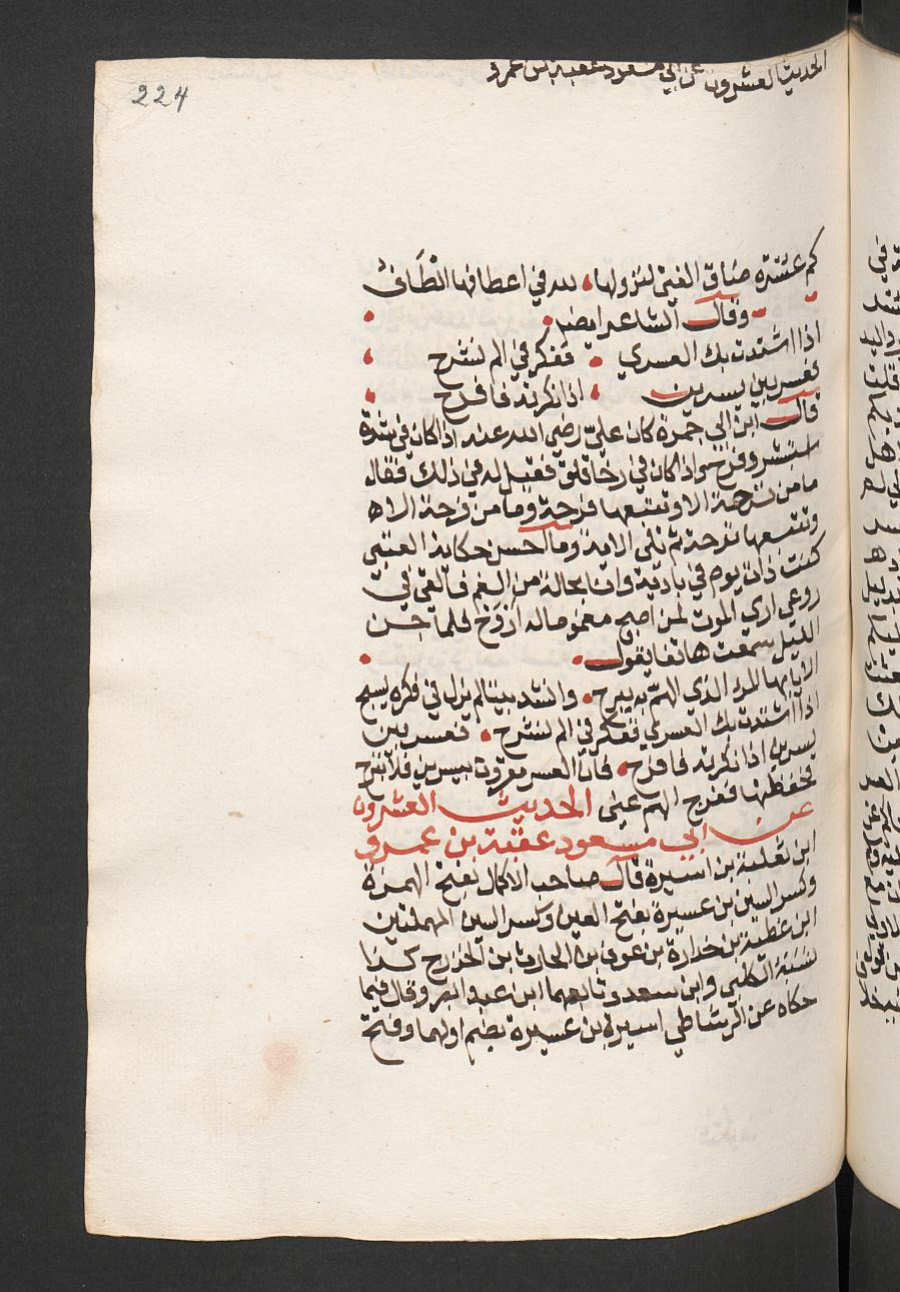 الحديث العشرون عن ابي مسعود عقبة بن عمرو
224
كم عسرة ضاق الفتى لنزولها لله في اعطافها الطاف
وقال الشاعر ايضا
اذا اشتدت بك العسري ففكر في الم نشرح
فعسر بين يسرين اذا ذكرته فافرح
قال ابن ابي جمرة كان علي رضي الله عنه اذا كان في شدة
استبشر وفرح واذا كان في رخا قلق فقيل له في ذلك فقال
ما من ترحة الا وتتبعها فرحة وما من فرحة الا
وتتبعها ترحة ثم تلى الاية وما احسن حكاية العتبي
كنت ذات يوم في بادية وانا بحالة من الغم فالقى في
روعي اري الموت لمن اصبح مغموما له اروح فلما جن
الليل سمعت هاتفا يقول
الا يا ايها المرء الذي الهم به يبرح وانشد بيتا لم يزل في فكره يسبح
اذا اشتدت بك العسري ففكر في الم نشرح فعسر بين
يسرين اذا ذكرته فافرح فان العسر مقرون بيسرين فلا تبرح
فحفظتها ففرج الهم عني الحديث العشرون
عن ابي مسعود عقبة بن عمرو
ابن ثعلبة بن اسيرة قال صاحب الاكمال بفتح الهمزة
وكسر السين بن عسيرة بفتح العين وكسر السين المهملتين
ابن عطية بن خدارة بن عوف بن الحارث بن الخزرج كذا
نسبه الكلبي وابن سعد وتابعهما ابن عبد البر وقال فيما
حكاه عن الرشاطي اسيرة بن عسيرة بضم اولهما وفتح